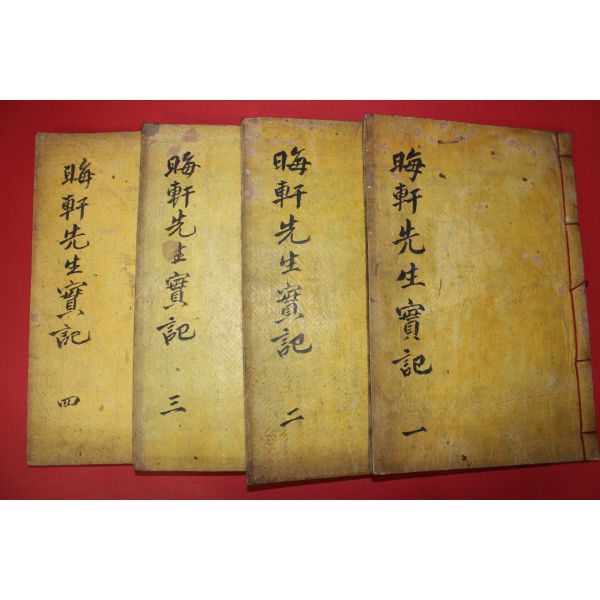 晦軒先生實記
一
晦軒先生實記
二
晦軒先生實記
三
晦軒先生實記
四